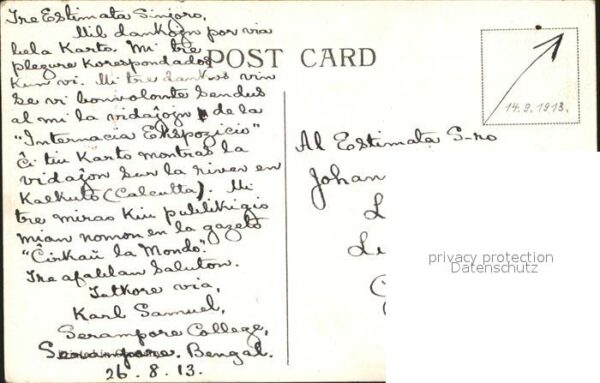 Tre Estimata Sinjoro,
Mil dankojn por via
bela Karto. Mi tre
plezure Korespondados
Kun vi. Mi tre dankos vin
se vi bonvolonte sendus
al mi la vidaĵojn de la
"Internacia Ekspozicio"
Ĉi tiu Karto montras la
vidaĵon sur la river en
Kalkuto (Calcutta). Mi
tre miras Kiu publikigis
mian nomon en la gazeto
"Ĉirkaŭ la Mondo".
Tre afablan Saluton.
Tutkore via,
Karl Samuel,
Serampore College,
Serampore. Bengal.
26. 8. 13.
POST CARD
14. 9. 1913.
Al Estimata S-ro
Johan
privacy protection
Datenschutz